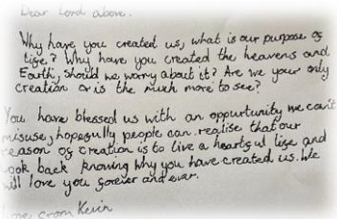 Dear Lord above.
Why have you created us, what is our purpose of
life? Why have you created the heavens and
Earth, should we worry about it? Are we your only
creation or is the much more to see?
You have blessed us with an oppurtunity we can't
misuse, hopefully people can realise that our
reason of creation is to live a heartful life and
look back knowing why you have created us. We
will love you forever and ever.
Love from Kevin